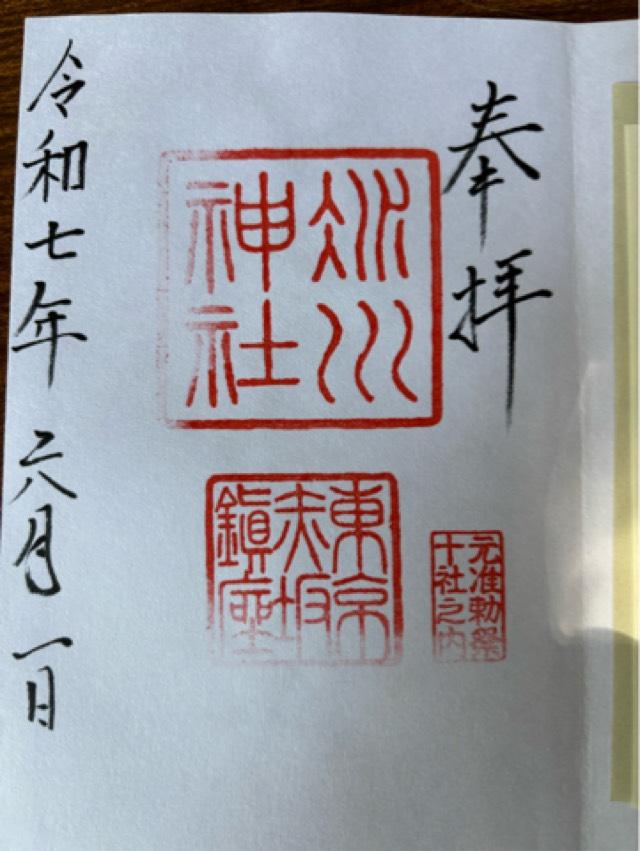 奉拝
氷川
神社
東京
赤坂
鎮座
元准勅祭
十社之内
令和七年 六月一日